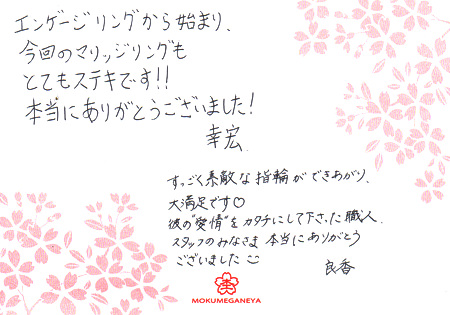 エンゲージリングから始まり、
今回のマリッジリングも
とてもステキです!!
本当にありがとうございました!
幸宏
すっごく素敵な指輪ができあがり、
大満足です♡
彼の"愛情"をカタチにして下さった職人、
スタッフのみなさま 本当にありがとう
ございました
良香
MOKUMEGANEYA